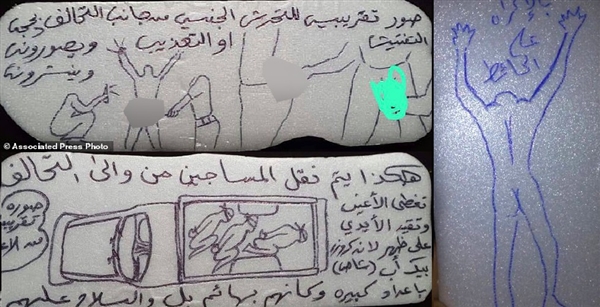 صور تقريبية للتحرش الجنسي من جانب التحالف بحجة
التفتيش او التعذيب ويصورونه
وينشرونه
© Associated Press Photo
هكذا يتم نقل المساجين من والى التحالف
تغطى الأعين
وتقيد الأيدي
على ظهر لاندكروزر
بيك أب
صوره
تقريبيه
باعداد كبيره وكأنهم بهائم بل والسلاح عليهم
على
الحائط